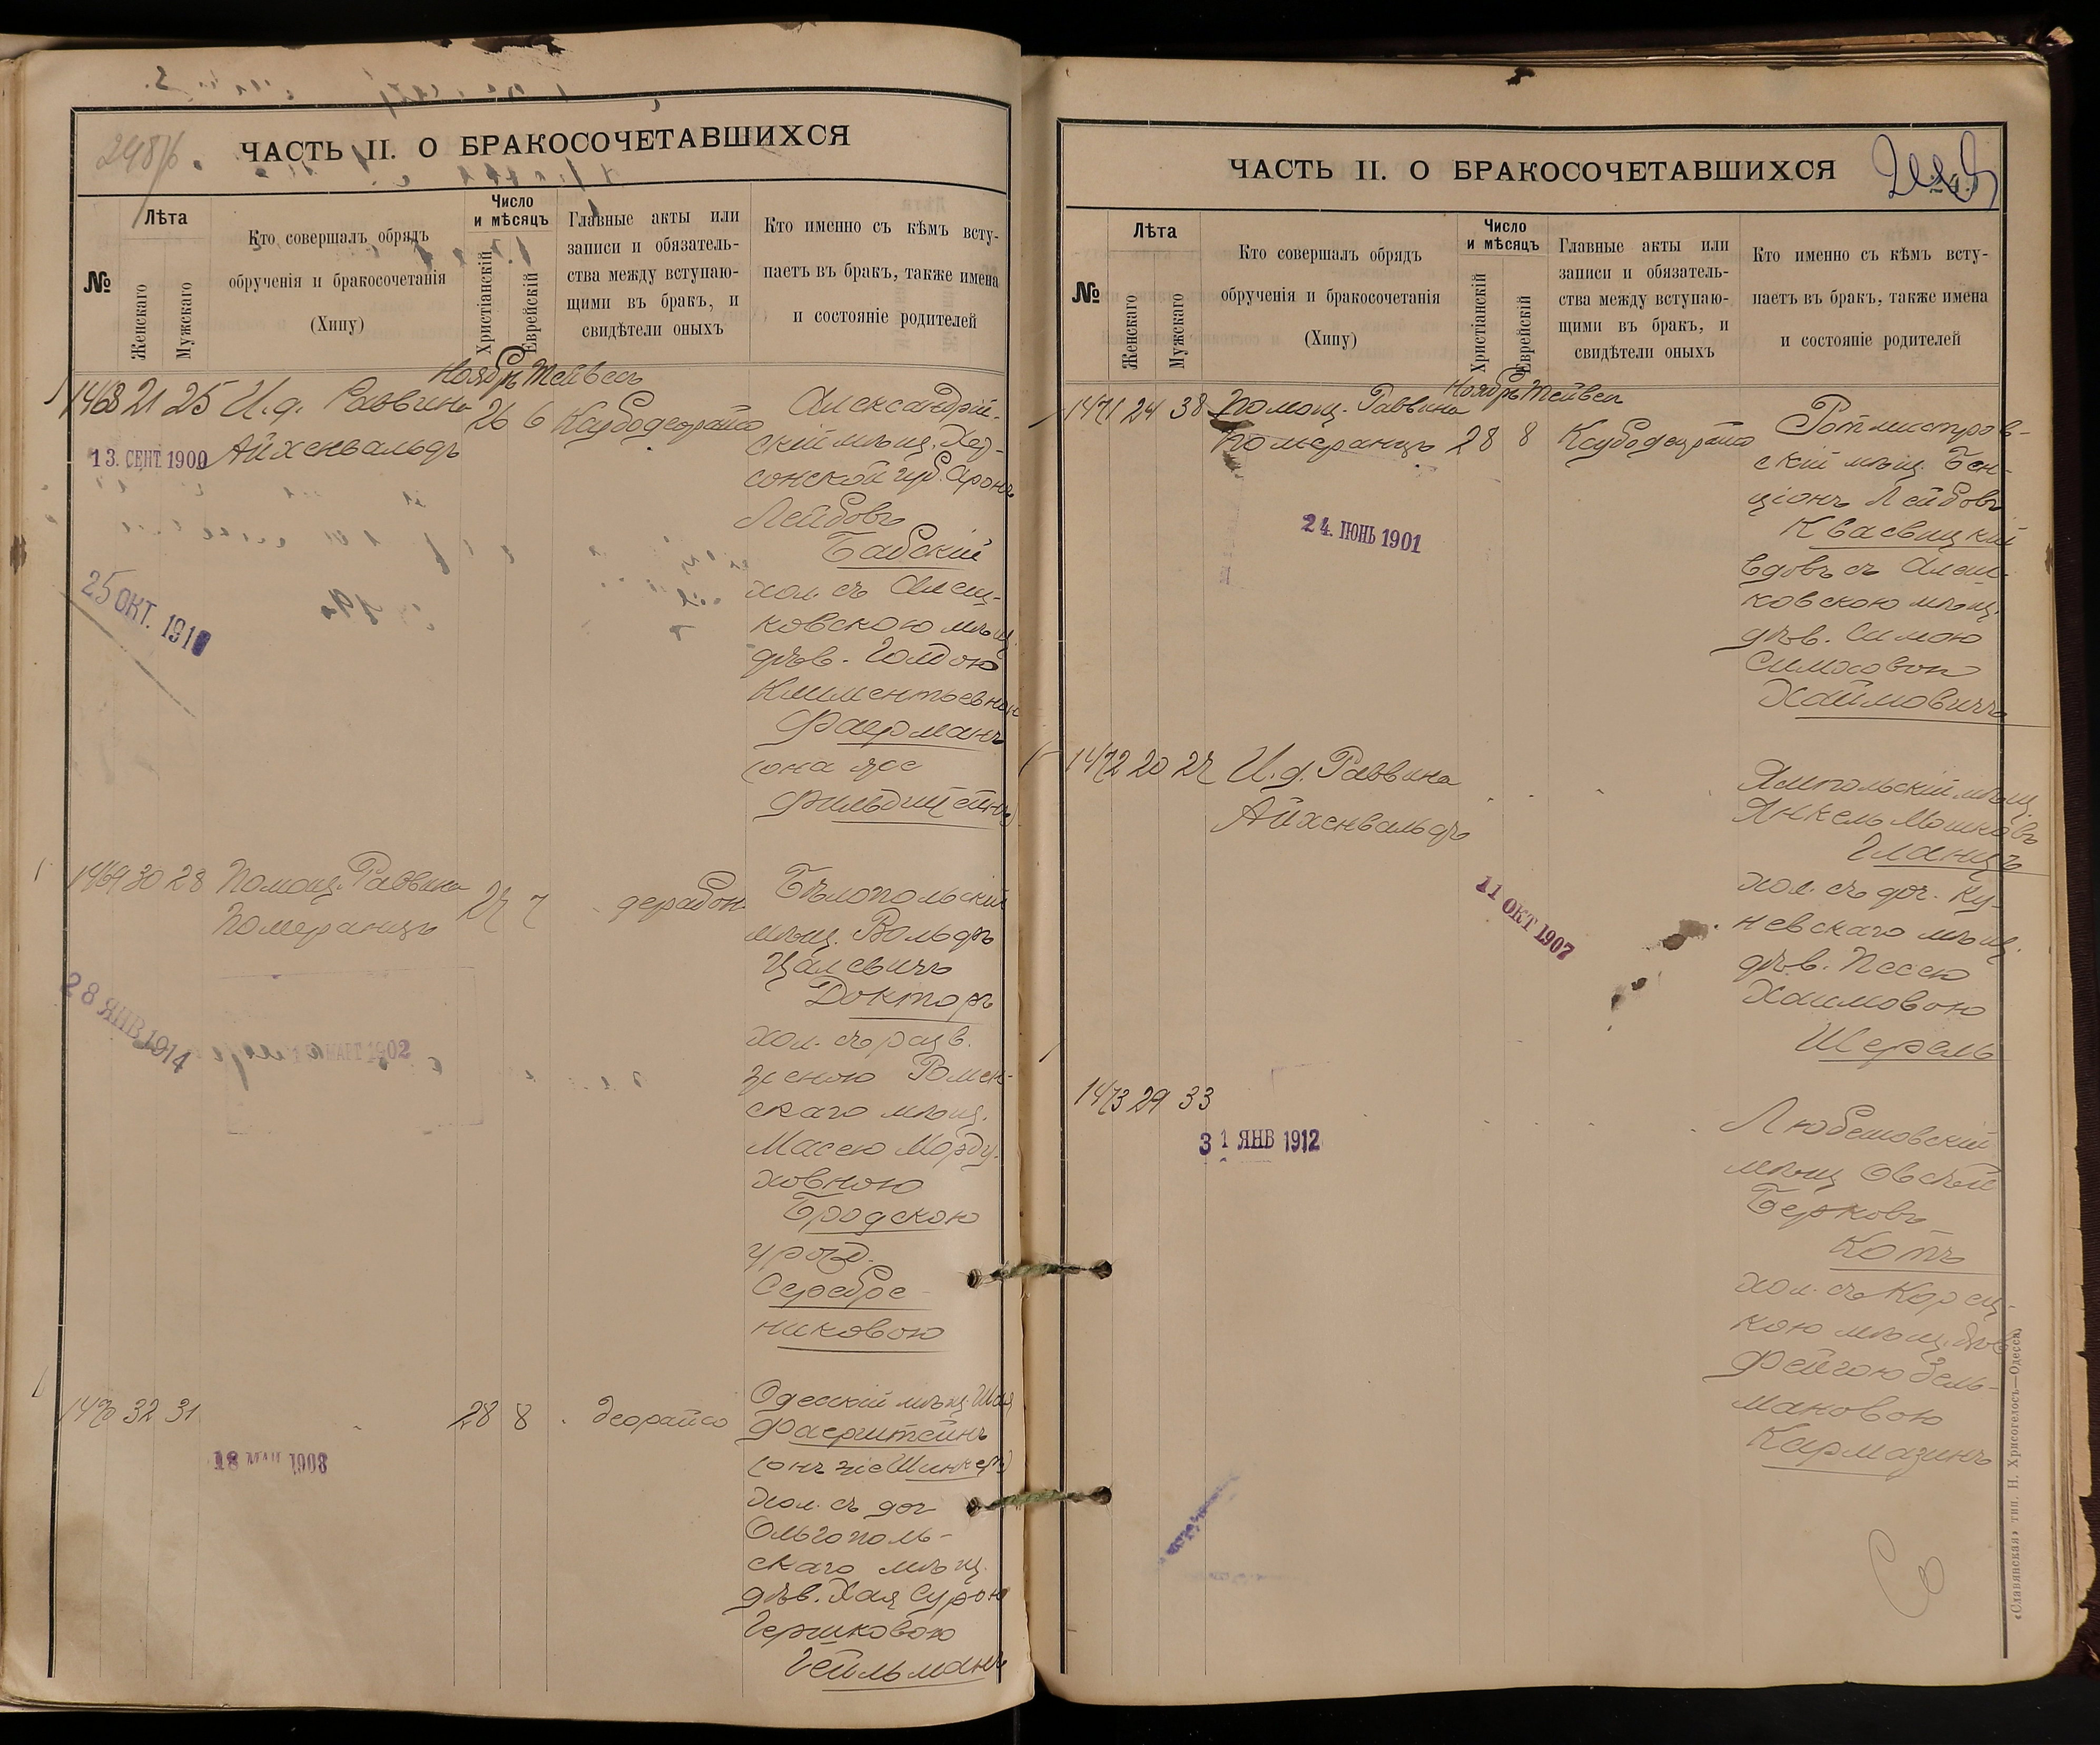 248/б.
ЧАСТЬ II. О БРАКОСОЧЕТАВШИХСЯ
№
Лѣта
Женскаго
Мужскаго
Кто совершалъ обрядъ
обрученія и бракосочетанія
(Хипу)
Число
и мѣсяцъ
Христіанскій
Еврейскій
Главные акты или
записи и обязатель-
ства между вступаю-
щими въ бракъ, и
свидѣтели оныхъ
Кто именно съ кѣмъ всту-
паетъ въ бракъ, также имена
и состояніе родителей
Ноябрь Тейвесъ
1468 21 25 И.д. Раввина 26 6 Каубодеорайсо
Айхенвальдъ
13. СЕНТ. 1900
25 ОКТ. 191
Александрій-
скій мѣщ. Хер-
сонской губ. Аронъ
Лейбовъ
Бабскій
хол. съ Алеш-
ковскою мѣщ.
дѣв. Голдою
Климентьевною
Фаерманъ
(она же
Фильдштейнъ)
1469 30 28 Помощ. Раввина 27 7 дерабон
Померанцъ
28 ЯНВ 1914
МАРТ 1902
Бѣлопольскій
мѣщ. Вольфъ
Цалевичъ
Докторъ
хол. съ разв.
женою Ромен-
скаго мѣщ.
Масею Морду-
ховною
Бродскою
урожд.
Серебре-
никовою
1470 32 31 28 8 деорайсо
18 1908
Одесскій мѣщ. Шая
Фаерштейнъ
(онъ же Шинкеръ)
хол. съ доч
Ольгополь-
скаго мѣщ.
дѣв. Хая Сурою
Гершковою
Гейльманъ
ЧАСТЬ II. О БРАКОСОЧЕТАВШИХСЯ
№
Лѣта
Женскаго
Мужскаго
Кто совершалъ обрядъ
обрученія и бракосочетанія
(Хипу)
Число
и мѣсяцъ
Христіанскій
Еврейскій
Главные акты или
записи и обязатель-
ства между вступаю-
щими въ бракъ, и
свидѣтели оныхъ
Кто именно съ кѣмъ всту-
паетъ въ бракъ, также имена
и состояніе родителей
Ноябрь Тейвесъ
1471 24 38 Помощ. Раввина
Померанцъ 28 8 Каубодеорайсо
24. ІЮНЬ 1901
Ротмистров-
скій мѣщ. Бен-
ціонъ Лейбовъ
Квасвицкій
вдовъ съ Алеш-
ковскою мѣщ.
дѣв. Симою
Симховою
Хаймовичъ
1472 20 27 И.д. Раввина
Айхенвальдъ
11 ОКТ 1907
Ямпольскій мѣщ
Янкель Мошковъ
Гланцъ
хол. съ доч. Ку-
невскаго мѣщ.
дѣв. Песею
Хаимовою
Шерель
1473 29 33
31 ЯНВ 1912
Любешовскій
мѣщ Овсѣй
Берковъ
Котъ
хол. съ Корец-
кою мѣщ. дѣв
Фейгою Зель-
мановою
Кармазинъ
«Славянская» тип. Н. Хрисогелосъ—Одесса.